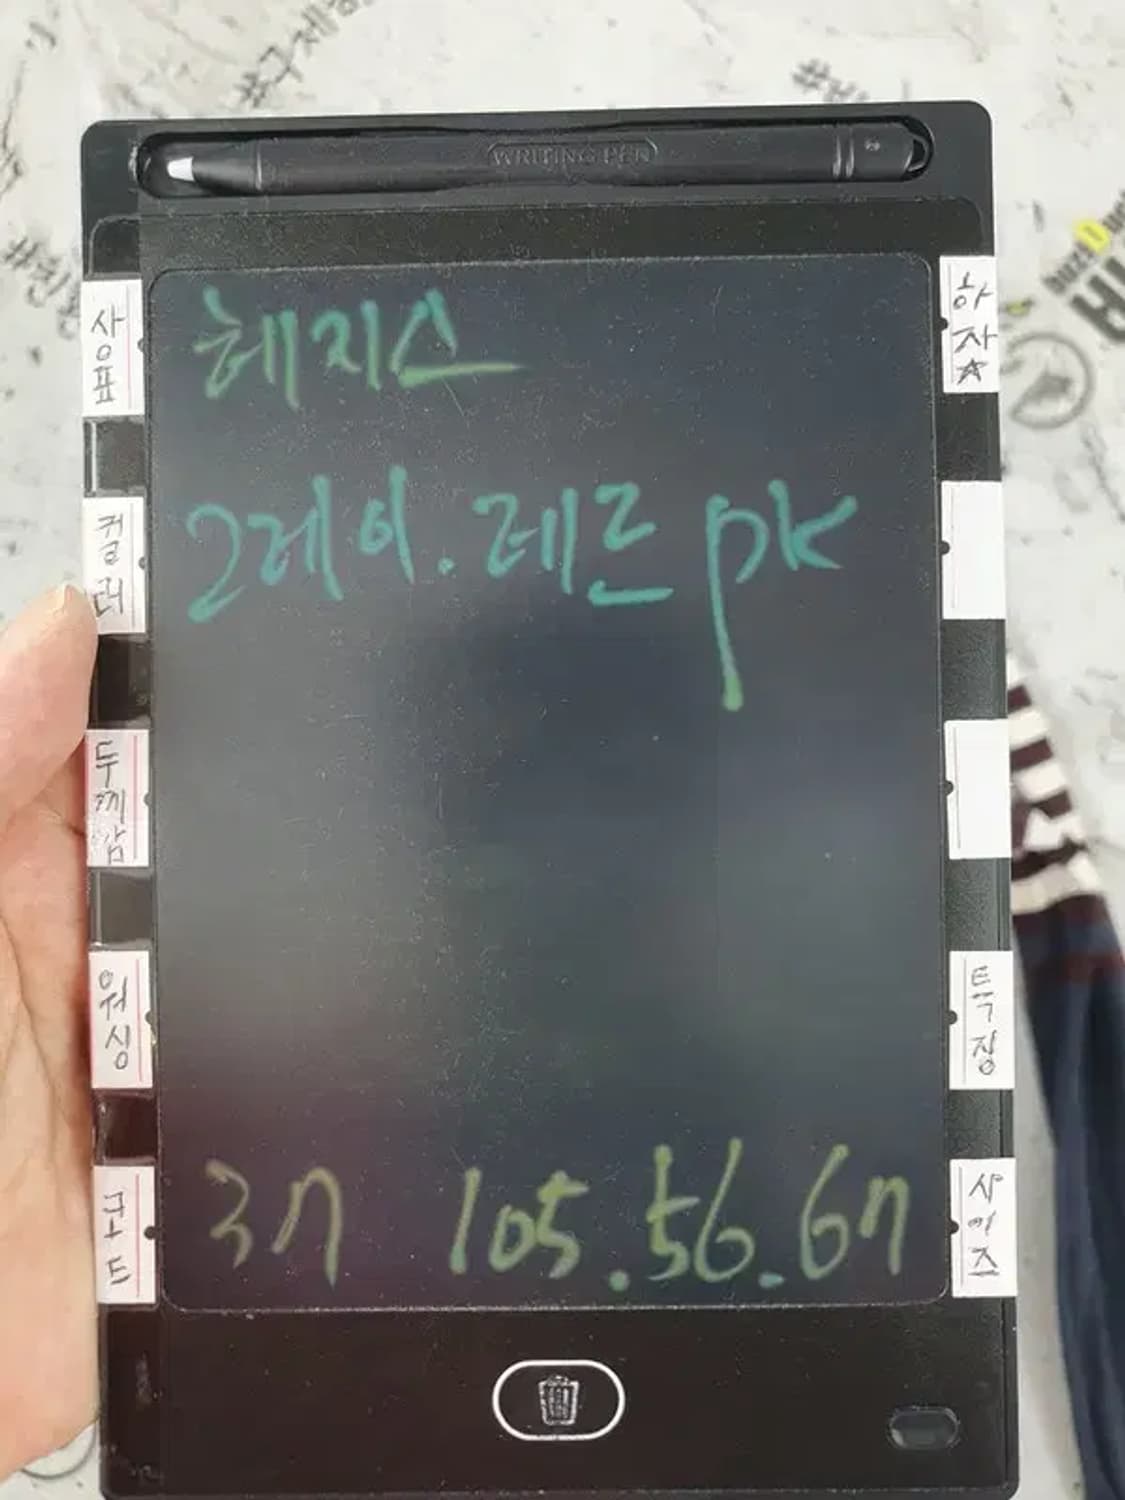 WRITING PEN
상표
하자☆
헤지스
컬러
그레이.레몬 pk
두께감
워싱
특징
코드
사이즈
3ㄲ 105.56.6ㄲ